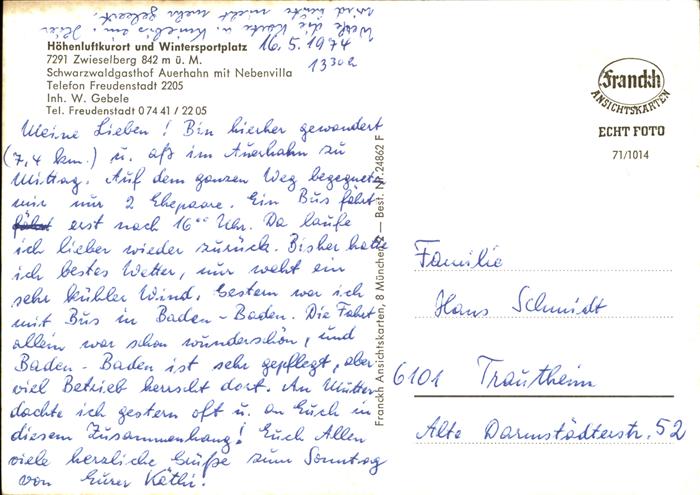 Werfe die Karte u. Kniebis ein. Hier
wird heute nicht mehr geleert.
Höhenluftkurort und Wintersportplatz
7291 Zwieselberg 842 m ü. M.
Schwarzwaldgasthof Auerhahn mit Nebenvilla
Telefon Freudenstadt 2205
Inh. W. Gebele
Tel. Freudenstadt 0 74 41 / 22 05
16.5.1974
13 30 h
Meine Lieben! Bin hierher gewandert
(7,4 km.) u. aß im Auerhahn zu
Mittag. Auf dem ganzen Weg begegneten
mir nur 2 Ehepaare. Ein Bus fährt
fährt erst nach 16°° Uhr. Da laufe
ich lieber wieder zurück. Bisher hatte
ich bestes Wetter, nur weht ein
sehr kühler Wind. Gestern war ich
mit Bus in Baden-Baden. Die Fahrt
allein war schon wunderschön, und
Baden-Baden ist sehr gepflegt, aber
viel Betrieb herrscht dort. An Mutter
dachte ich gestern oft u. an Euch in
diesem Zusammenhang! Euch Allen
viele herzliche Grüße zum Sonntag
von Eurer Käthi.
Franckh Ansichtskarten, 8 München 22 — Best. Nr. 24862 F
Franckh
ANSICHTSKARTEN
ECHT FOTO
71/1014
Familie
Hans Schmidt
6101 Trautheim
Alte Darmstädterstr. 52